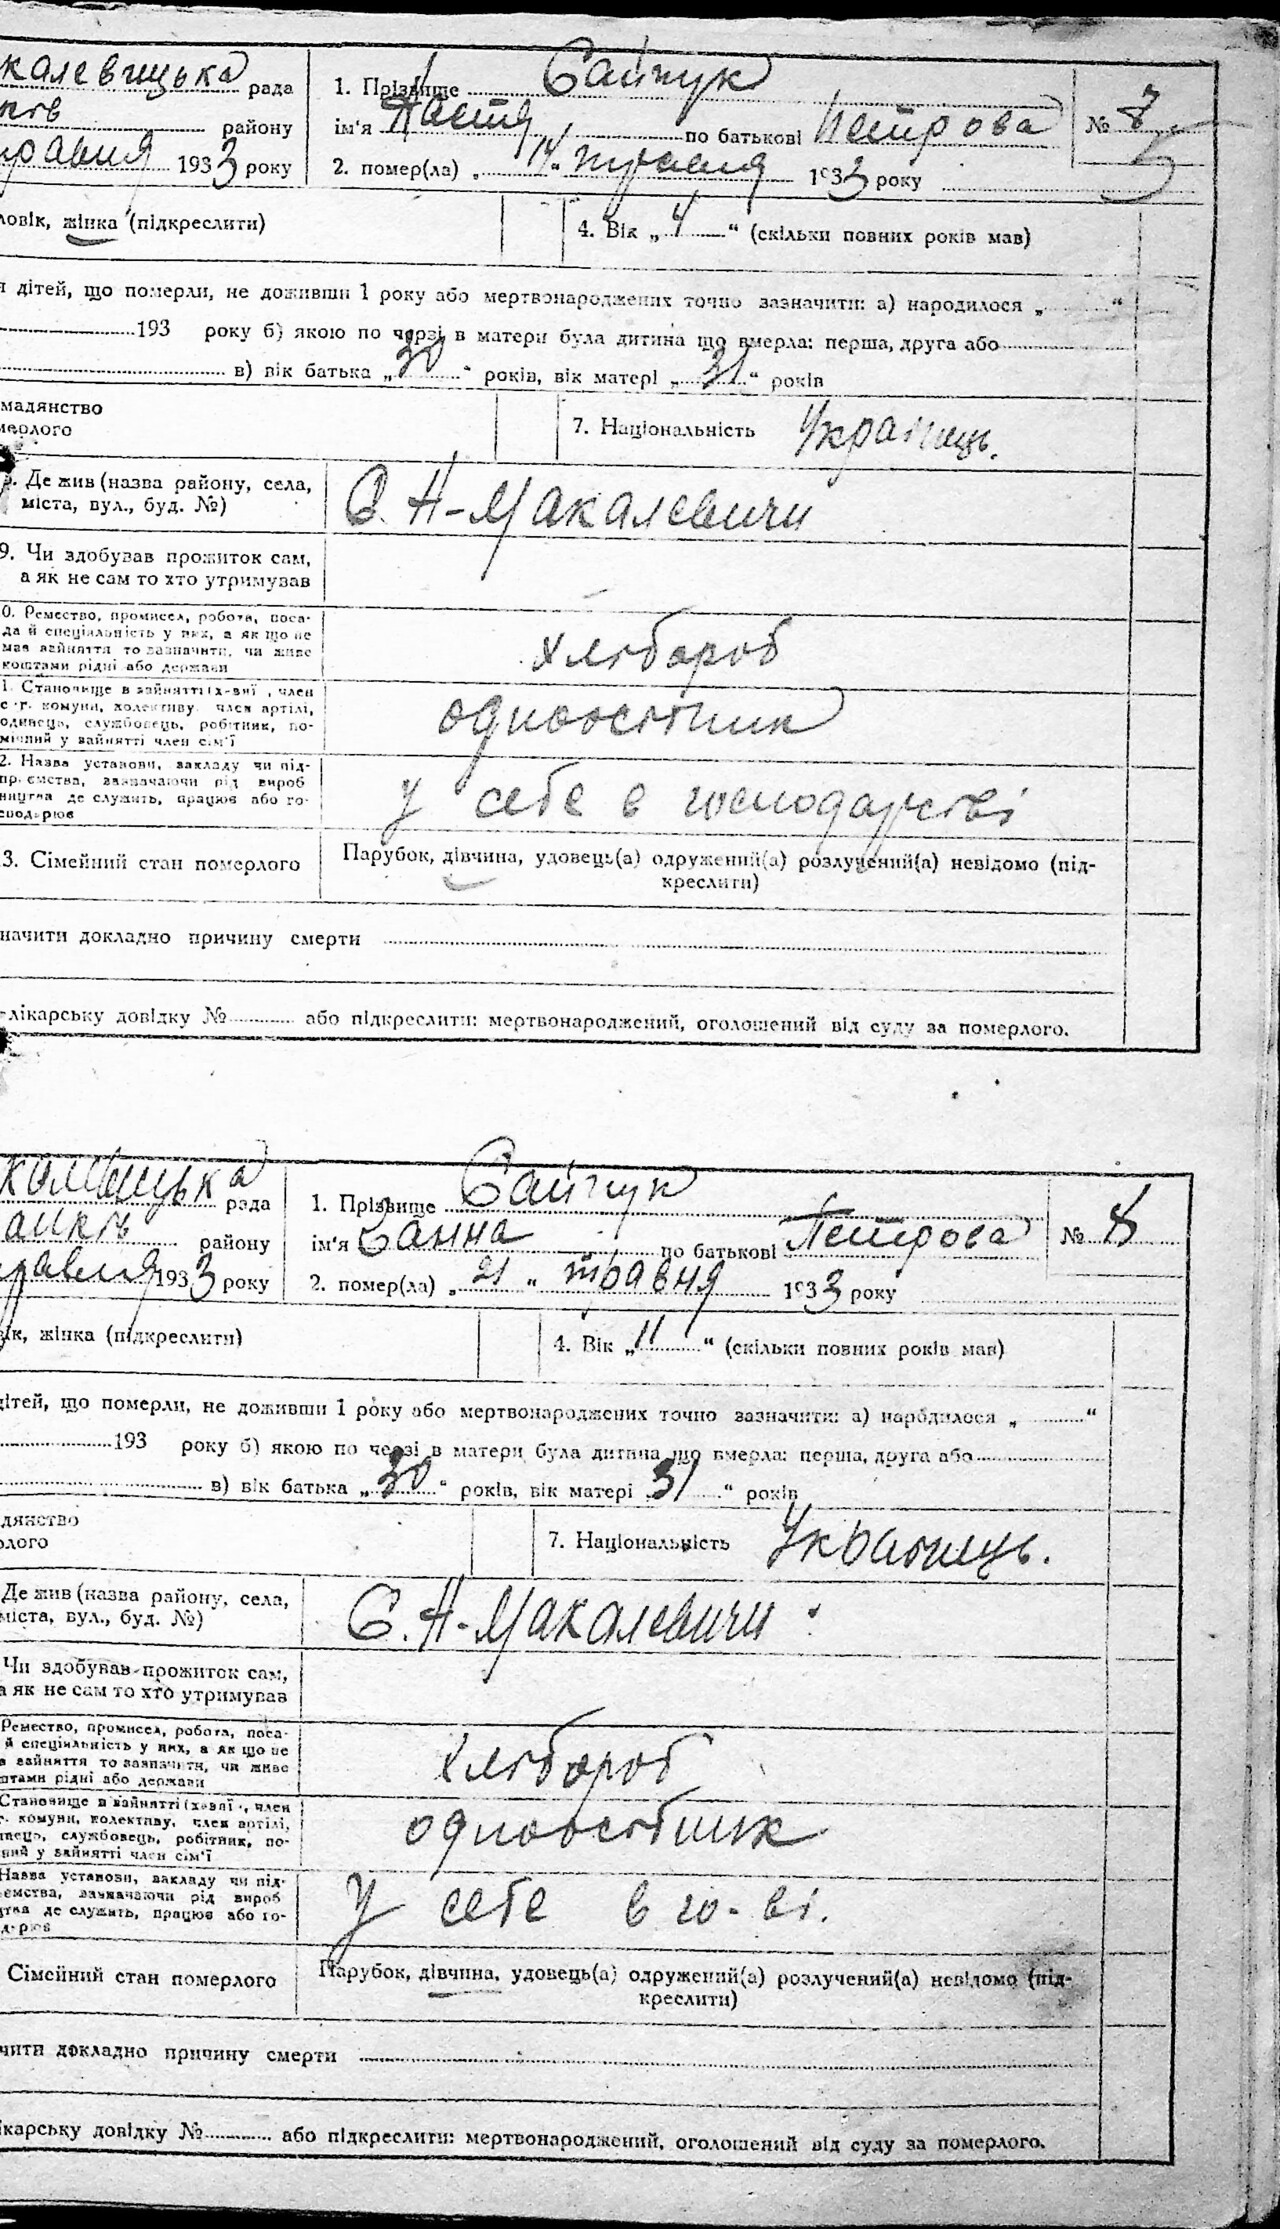 калевицька рада
1. Прізвище Сайчук
№ 7
району
ім'я Настя по батькові Петрова
травня 1933 року
2. помер(ла) „14“ травня 1933 року
ловік, жінка (підкреслити)
4. Вік „4“ (скільки повних років мав)
я дітей, що померли, не доживши 1 року або мертвонароджених точно зазначити: а) народилося „ “
193 року б) якою по черзі в матери була дитина що вмерла: перша, друга або
в) вік батька „30“ років, вік матері „31“ років
мадянство
мерлого
7. Національність Українець.
. Де жив (назва району, села,
міста, вул., буд. №)
С. Н-Макалевичи
9. Чи здобував прожиток сам,
а як не сам то хто утримував
0. Ремество, промисел, робота, поса-
да й спеціяльність у них, а як що не
мав зайняття то зазначити, чи живе
коштами рідні або держави
хлібороб
1. Становище в зайнятті (х-ваї , член
с.-г. комуни, колективу, член артілі,
одинець, службовець, робітник, по-
мічний у зайнятті член сім'ї
одноосібник
2. Назва установи, закладу чи під-
приємства, зазначаючи рід вироб
ництва де служить, працює або го-
сподарює
у себе в господарстві
3. Сімейний стан померлого
Парубок, дівчина, удовець(а) одружений(а) розлучений(а) невідомо (під-
креслити)
начити докладно причину смерти
лікарську довідку № або підкреслити: мертвонароджений, оголошений від суду за померлого.
рада
1. Прізвище Сайчук
№ 8
району
ім'я Ганна по батькові Петрова
травня 1933 року
2. помер(ла) „21“ травня 1933 року
вік, жінка (підкреслити)
4. Вік „11“ (скільки повних років мав)
дітей, що померли, не доживши 1 року або мертвонароджених точно зазначити: а) народилося „ “
193 року б) якою по черзі в матери була дитина що вмерла: перша, друга або
в) вік батька „30“ років, вік матері „31“ років
дянство
олого
7. Національність Українець.
Де жив (назва району, села,
міста, вул., буд. №)
С. Н-Макалевичи
Чи здобував прожиток сам,
а як не сам то хто утримував
Ремество, промисел, робота, поса-
й спеціяльність у них, а як що не
в зайняття то зазначити, чи живе
штами рідні або держави
хлібороб
Становище в зайнятті (х-ваї , член
г. комуни, колективу, член артілі,
нець, службовець, робітник, по-
ний у зайнятті член сім'ї
одноосібник
Назва установи, закладу чи під-
ємства, зазначаючи рід вироб
цтва де служить, працює або го-
дарює
У себе в го-ві.
Сімейний стан померлого
Парубок, дівчина, удовець(а) одружений(а) розлучений(а) невідомо (під-
креслити)
чити докладно причину смерти
ікарську довідку № або підкреслити: мертвонароджений, оголошений від суду за померлого.